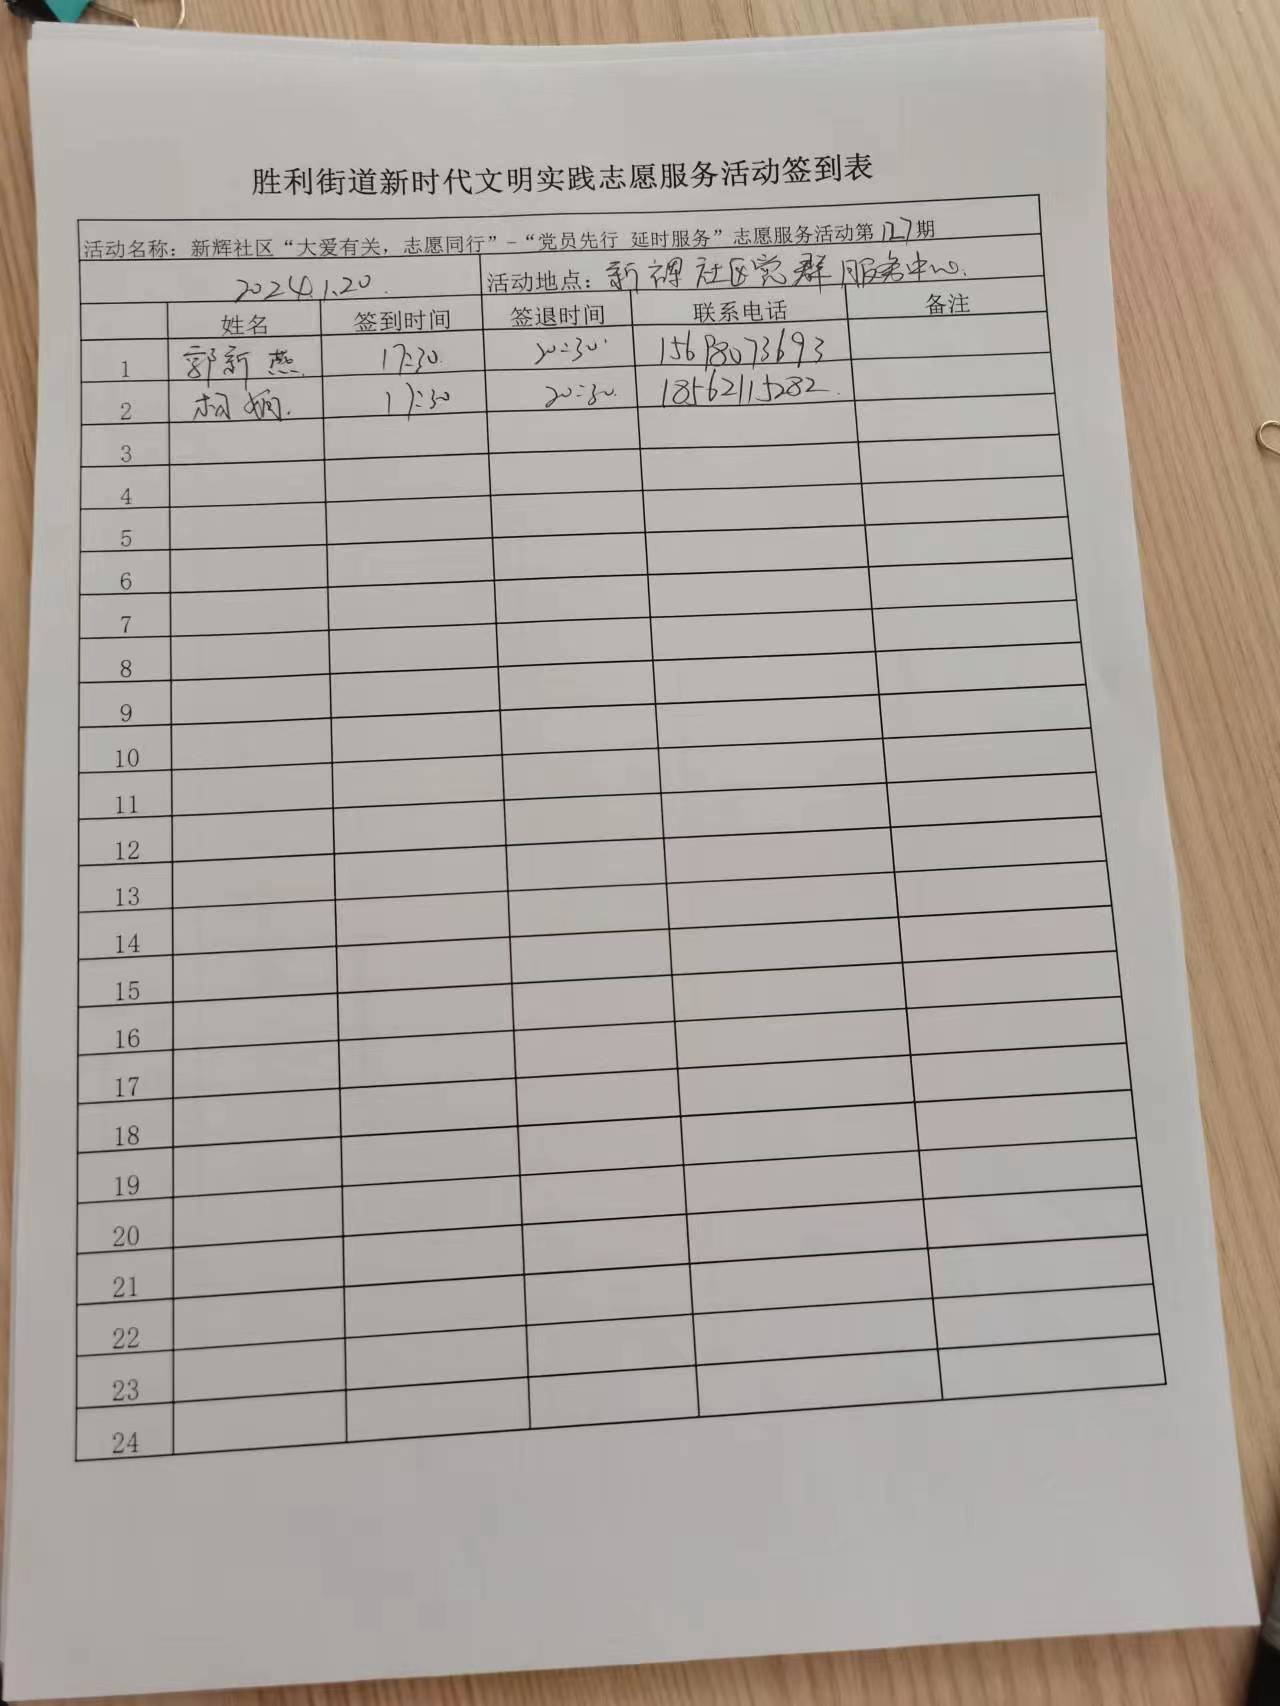 胜利街道新时代文明实践志愿服务活动签到表
活动名称：新辉社区“大爱有关，志愿同行”-“党员先行 延时服务”志愿服务活动第127期
2024.1.20. 活动地点：新辉社区党群服务中心.
姓名 签到时间 签退时间 联系电话 备注
1 郭新燕 17:30. 20:30. 073693
2 17:30 20:30. 18562115282.
3
4
5
6
7
8
9
10
11
12
13
14
15
16
17
18
19
20
21
22
23
24